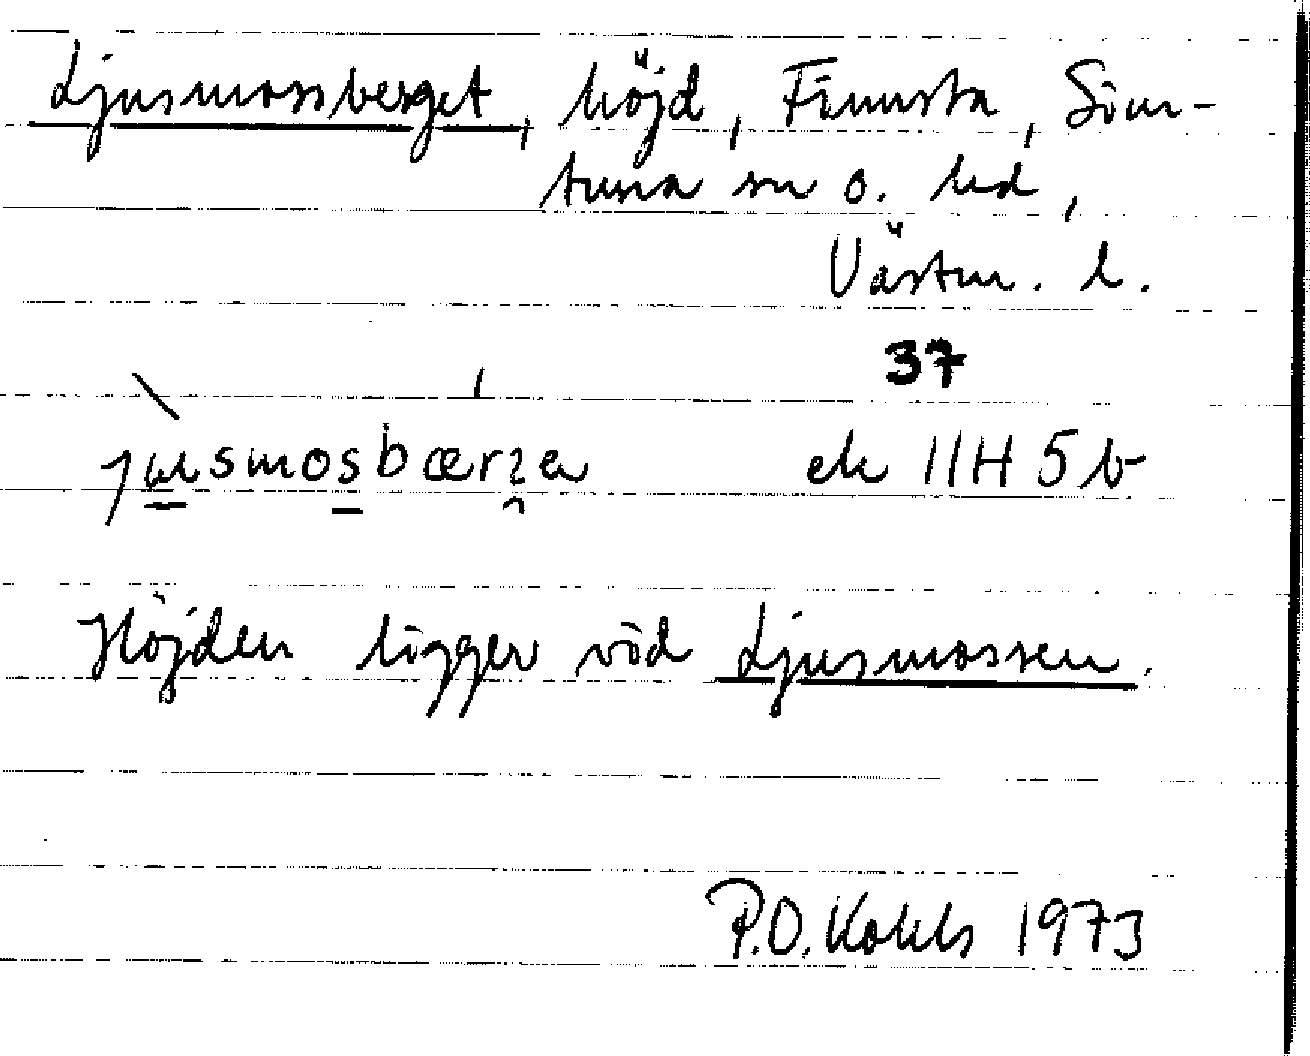 Ljusmossberget, höjd, Finnsta, Sim-
tuna sn o. hd,
Västm. l.
37
jusmosbærjə ek 11H 5b
Höjden ligger vid Ljusmossen.
P.O. 1973